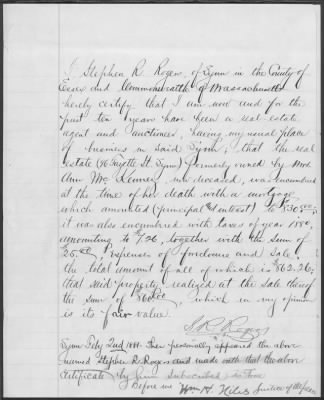 I Stephen R. Rogers, of Lynn in the County of
Essex and Commonwealth of Massachusetts
hereby certify that I am now and for the
past ten years have been a real estate
agent and auctioneer, having my usual place
of business in said Lynn, that the real
estate (96 Fayette St. Lynn) formerly owned by Mrs
Ann Mc Kenney now deceased, was incumbered
at the time of her death with a mortgage
which amounted (principal & interest) to $830.00
it was also encumbered with taxes of year 1880,
amounting to $7.26, together with the sum of
$25.00 expenses of foreclosure and sale,
the total amount of all of which is $862.26,
that said property realized at the sale thereof
the sum of which in my opinion
is its fair value.
S. R. Rogers
Lynn Feby 2nd 1881. Then personally appeared the above
named Stephen R. Rogers and made oath that the above
certificate by him subscribed is true
Before me Wm H. Niles Justice of the Peace